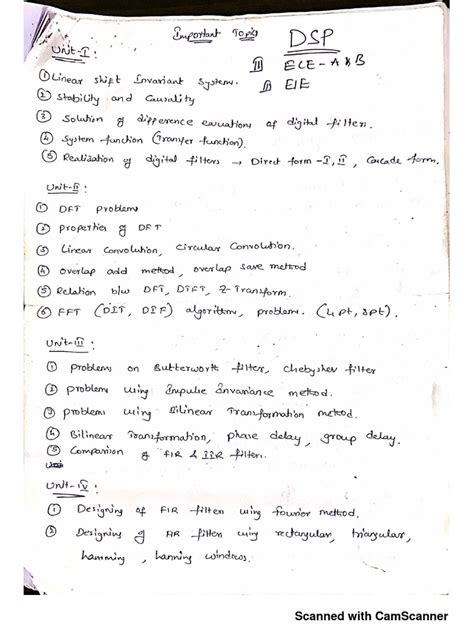 Important Topics
DSP
Unit-I:
III ECE-A&B
① Linear shift Invariant System.
III EIE
② Stability and Causality
③ Solution of difference equations of digital filters.
④ System function (Transfer function).
⑤ Realization of digital filters → Direct form-I, II, Cascade form.
Unit-II:
① DFT problems
② properties of DFT
③ Linear Convolution, Circular Convolution.
④ overlap add method, overlap save method
⑤ Relation b/w DFT, DTFT, Z-Transform.
⑥ FFT (DIT, DIF) algorithm, problems. (4pt, 8pt).
Unit-III:
① problems on Butterworth filter, Chebyshev filter
② problems using Impulse Invariance method.
③ problems using Bilinear Transformation method.
④ Bilinear Transformation, phase delay, group delay.
⑤ Comparison of FIR & IIR filters.
Unit-IV:
① Designing of FIR filters using fourier method.
② Designing of FIR filters using rectangular, triangular,
hamming, hanning windows.
Scanned with CamScanner